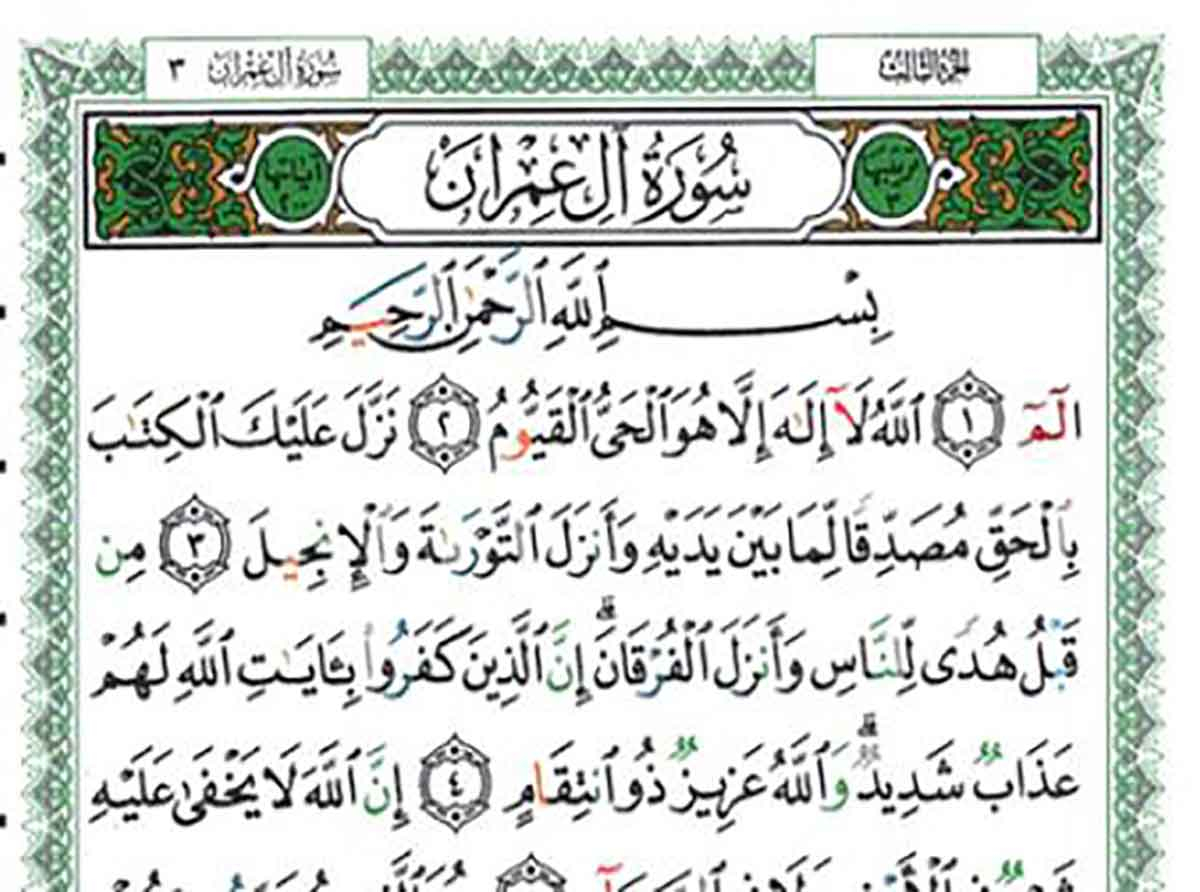 الجزء الثالث
سُورَةُ آلِ عِمْرَانَ ٣
ترتيبها ٣
سُورَةُ آلِ عِمْرَانَ
آياتها ٢٠٠
بِسْمِ ٱللَّهِ ٱلرَّحْمَٰنِ ٱلرَّحِيمِ
الٓمٓ ١ ٱللَّهُ لَآ إِلَٰهَ إِلَّا هُوَ ٱلْحَىُّ ٱلْقَيُّومُ ٢ نَزَّلَ عَلَيْكَ ٱلْكِتَٰبَ
بِٱلْحَقِّ مُصَدِّقًا لِّمَا بَيْنَ يَدَيْهِ وَأَنزَلَ ٱلتَّوْرَىٰةَ وَٱلْإِنجِيلَ ٣ مِن
قَبْلُ هُدًى لِّلنَّاسِ وَأَنزَلَ ٱلْفُرْقَانَ ۗ إِنَّ ٱلَّذِينَ كَفَرُوا۟ بِـَٔايَٰتِ ٱللَّهِ لَهُمْ
عَذَابٌ شَدِيدٌ ۗ وَٱللَّهُ عَزِيزٌ ذُو ٱنتِقَامٍ ٤ إِنَّ ٱللَّهَ لَا يَخْفَىٰ عَلَيْهِ